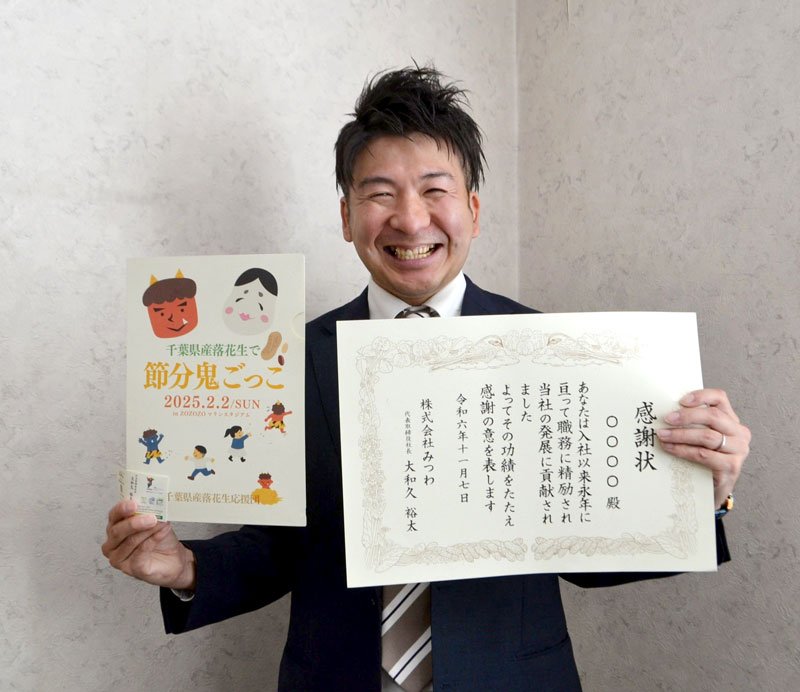 千葉県産落花生で
節分鬼ごっこ
2025.2.2/SUN
in ZOZOZO マリンスタジアム
千葉県産落花生応援団
感謝状
〇〇〇〇 殿
あなたは入社以来永年に
亘って職務に精励され
当社の発展に貢献され
ました
よってその功績をたたえ
感謝の意を表します
令和六年十一月七日
株式会社みつわ
代表取締役社長 大和久 裕太